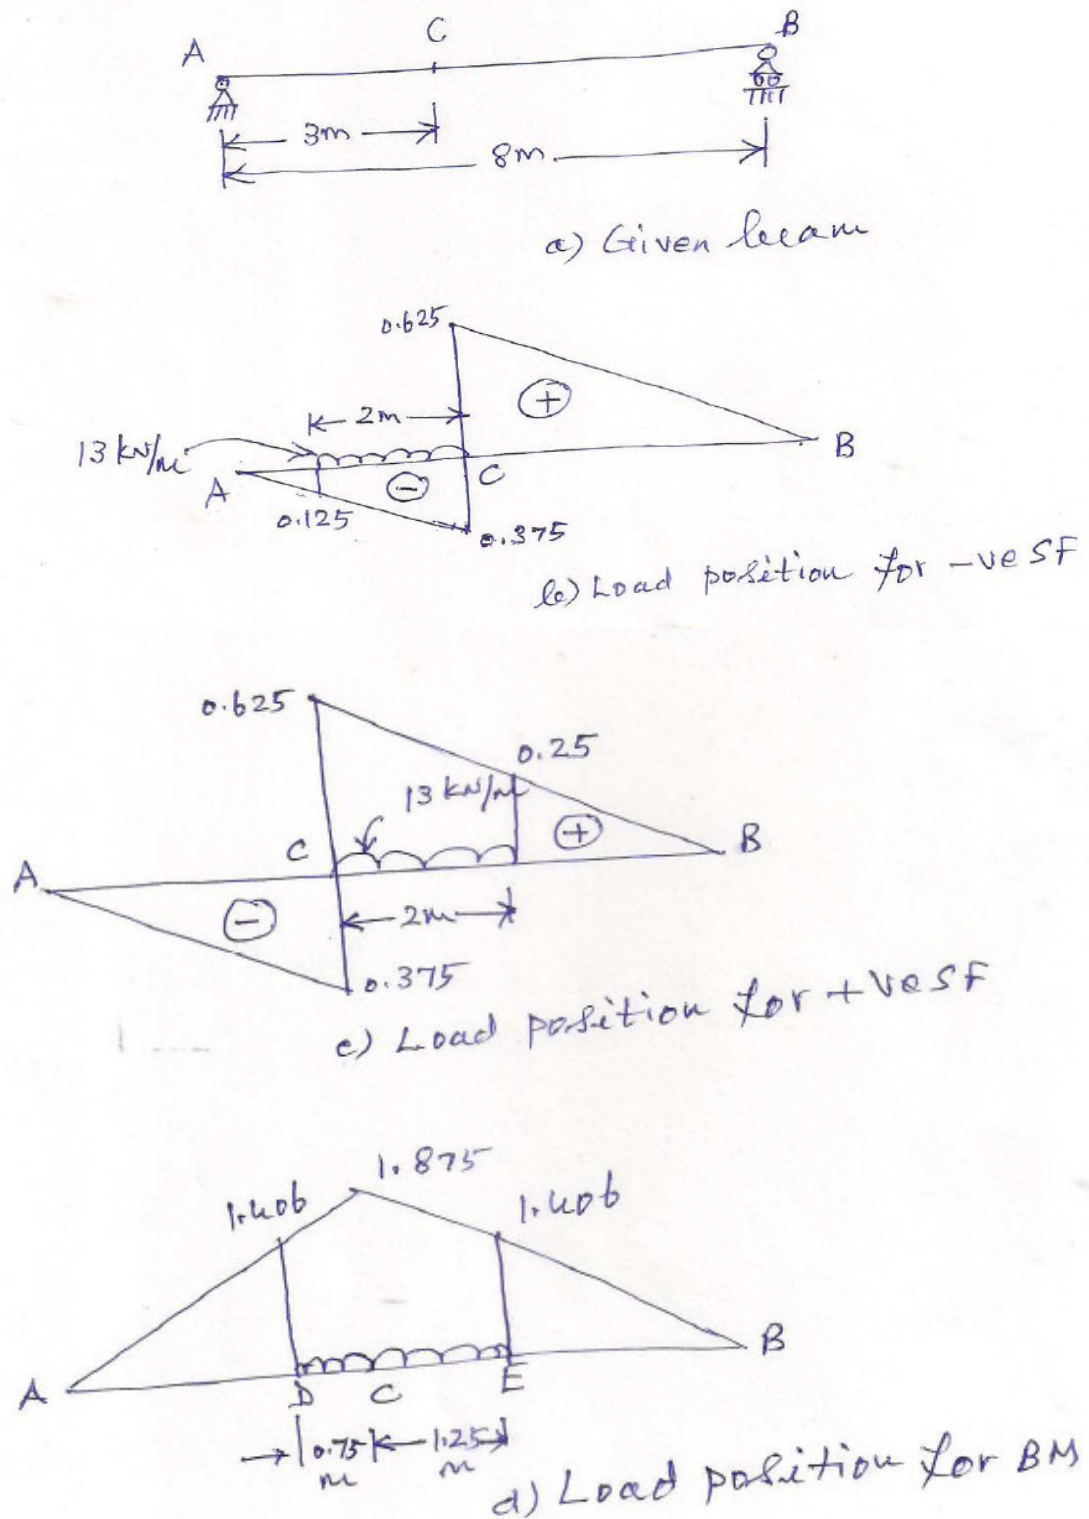 A C B
3m
8m.
a) Given beam
0.625
+
2m
13 kN/m
A - C B
0.125
0.375
b) Load position for -ve SF
0.625
0.25
13 kN/m
+
A C B
-
2m
0.375
c) Load position for +ve SF
1.875
1.406 1.406
A D C E B
0.75 1.25
m m
d) Load position for BM